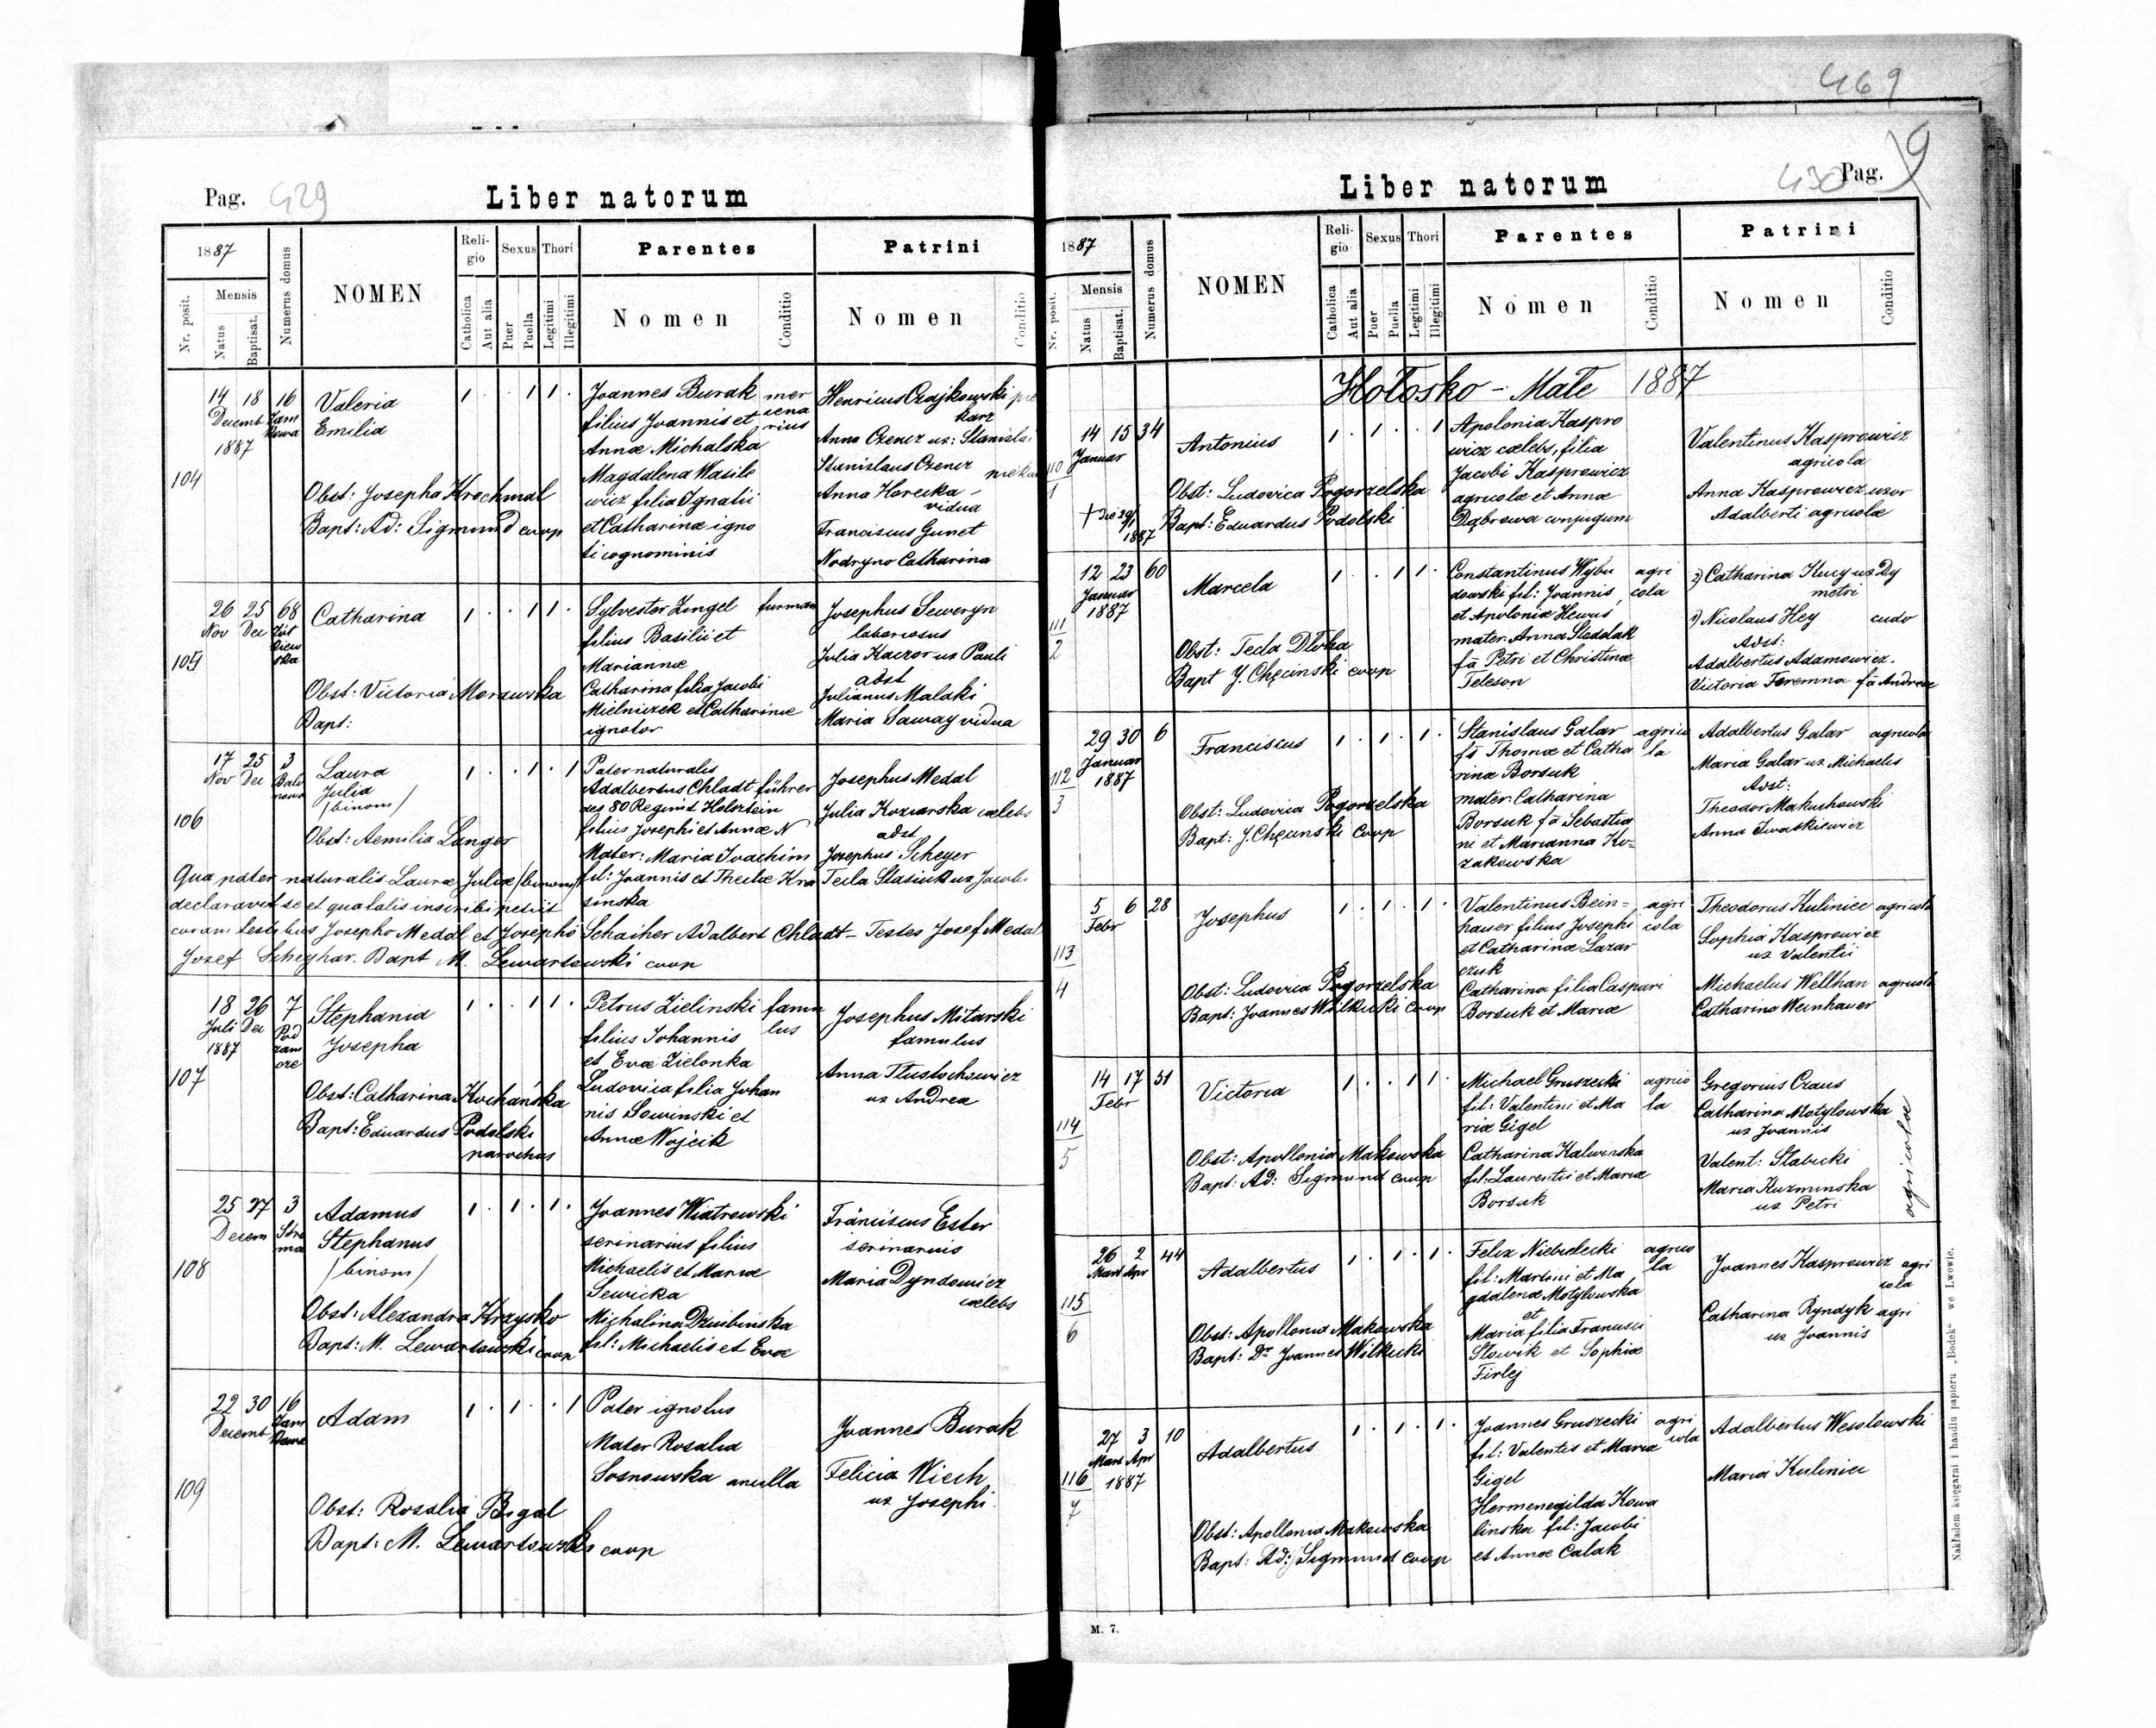 Pag. 429
Liber natorum
1887
Numerus domus
NOMEN
Religio
Sexus
Thori
Parentes
Patrini
Nr. posit.
Mensis
Natus
Baptisat.
Catholica
Aut alia
Puer
Puella
Legitimi
Illegitimi
Nomen
Conditio
Nomen
Conditio
104
14 18 16
Decemb
1887
Valeria
Emilia
1 . . 1 1 .
Obst: Josepha Krochmal
Bapt: Ad: Sigmund coop
Joannes Burak mer
filius Joannis et cena
Annæ Michalska rius
Magdalena Wasile
wicz filia Ignatii
et Catharinæ igno
ti cognominis
Henricus Czajkowski
karz
Anna Czencz ux: Stanislai
Stanislaus Czencz
Anna Horecka -
vidua
Franciscus Gunet
Nodryno Catharina
105
26 25 68
Nov Dec
Catharina
1 . . 1 1 .
Obst: Victoria Morawska
Bapt:
Sylvester Zingel furman
filius Basilii et
Mariannæ
Catharina filia Jacobi
Mielniczek et Catharinæ
ignotor
Josephus Seweryn
laboriosus
Julia Kaczor ux Pauli
abst
Julianus Malaki
Maria Saway vidua
106
17 25 3
Nov Dec
Laura
Julia
/binom/
1 . . 1 . 1
Obst: Aemilia Langer
Pater naturalis
Adalbertus Chladt führer
des 80 Regimt Holstein
filius Josephi et Annæ N
Mater: Maria Joachim
fil: Joannis et Theclæ Kra
sinska
Josephus Medal
Julia Koziarska cælebs
abst
Josephus Scheyer
Tecla Stasiuk ux Jacobi
Qua pater naturalis Lauræ Juliæ /binom/
declaravit se et qua talis inscribi petiit
coram testibus Josepho Medal et Josepho Schaiher Adalbert Chladt - Testes Josef Medal
Josef Scheyhar. Bapt M. Lewartowski coop
107
18 26 7
Juli Dec Pod
1887 zam
cze
Stephania
Josepha
1 . . 1 1 .
Obst: Catharina Kochańska
Bapt: Eduardus Podolski
parochus
Petrus Zielinski famu
filius Johannis lus
et Evæ Zielonka
Ludovica filia Johan
nis Sowinski et
Annæ Wojcik
Josephus Mitarski
famulus
Anna Tłustochowicz
ux Andrea
108
25 27 3
Decem
Adamus
Stephanus
/binom/
1 . 1 . 1 .
Obst: Alexandra Krzysko
Bapt: M. Lewartowski coop
Joannes Wiatrowski
serinarius filius
Michaelis et Mariæ
Sewicka
Michalina Dziubinska
fil: Michaelis et Evæ
Franciscus Ester
serinarius
Maria Dyndowicz
cælebs
109
22 30 16
Decemb
Adam
1 . 1 . . 1
Obst: Rosalia Bigal
Bapt: M. Lewartowski coop
Pater ignotus
Mater Rosalia
Sosnowska ancilla
Joannes Burak
Felicia Wiech
ux Josephi
469
9
430 Pag.
Liber natorum
1887
Numerus domus
NOMEN
Religio
Sexus
Thori
Parentes
Patrini
Nr. posit.
Mensis
Natus
Baptisat.
Catholica
Aut alia
Puer
Puella
Legitimi
Illegitimi
Nomen
Conditio
Nomen
Conditio
Hołosko - Małe 1887
110
1
14 15 34
Januar
Antonius
1 . 1 . . 1
Obst: Ludovica Pogorzelska
Bapt: Eduardus Podolski
† Die 29/1
1887
Apolonia Kaspro
wicz cælebs, filia
Jacobi Kasprowicz
agricolæ et Annæ
Dąbrowa conjugum
Valentinus Kasprowicz
agricola
Anna Kasprowicz uxor
Adalberti agricolæ
111
2
12 23 60
Januar
1887
Marcela
1 . . 1 1 .
Obst: Tecla Dloha
Bapt J. Chęcinski coop
Constantinus Wybu agri
dowski fil: Joannis, cola
et Apoloniæ Hewus
mater: Anna Stedolak
fa Petri et Christinæ
Teleson
2) Catharina Kucy ux Dy
metri
1) Nicolaus Hey cudo
Adst:
Adalbertus Adamowicz.
Victoria Feremna fa Andreæ
112
3
29 30 6
Januar
1887
Franciscus
1 . 1 . 1 .
Obst: Ludovica Pogorzelska
Bapt: J. Chęcinski Coop
Stanislaus Galar agrico
fs Thomæ et Catha la
rina Borsuk
mater: Catharina
Borsuk fa Sebastia
ni et Marianna Ko=
zakowska
Adalbertus Galar agricola
Maria Galar ux Michaelis
Adst:
Theodor Makuchowski
Anna Iwaskiewicz
113
4
5 6 28
Febr
Josephus
1 . 1 . 1 .
Obst: Ludovica Pogorzelska
Bapt: Joannes Wilkicki Coop
Valentinus Bein= agri
hauer filius Josephi cola
et Catharinæ Lazar
czuk
Catharina filia Caspari
Borsuk et Mariæ
Theodorus Kulinicz agricola
Sophia Kasprowicz
ux Valentii
Michaelus Wellhan agricola
Catharina Weinhauer
114
5
14 17 51
Febr
Victoria
1 . . 1 1 .
Obst: Apollonia Makowska
Bapt: Ad: Sigmund coop
Michael Gruszecki agrico
fil: Valentini et Ma la
riæ Gigel
Catharina Kalwinska
fil: Laurentii et Mariæ
Borsuk
Gregorius Craus
Catharina Motylowska
ux Joannis
Valent: Stabicki
Maria Kuzminska
ux Petri
agricolæ
115
6
26 2 44
Mart Apr
Adalbertus
1 . 1 . 1 .
Obst: Apollonia Makowska
Bapt: Dr Joannes Wilkicki
Felix Niebielecki agrico
fil: Martini et Ma la
gdalenæ Motylowska
et
Maria filia Francisci
Słowik et Sophiæ
Firlej
Joannes Kasprowicz agri
cola
Catharina Ryndyk agri
ux Joannis
116
7
27 3 10
Mart Apr
1887
Adalbertus
1 . 1 . 1 .
Obst: Apollonia Makowska
Bapt: Ad: Sigmund coop
Joannes Gruszecki agri
fil: Valentis et Mariæ cola
Gigel
Hermenegilda Kowa
linska fil: Jacobi
et Annæ Calak
Adalbertus Wesołowski
Maria Kulinicz
M. 7.
Nakładem księgarni i handlu papieru „Bodek“ we Lwowie.